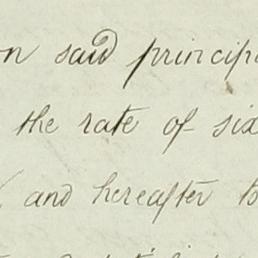 on said princip
the rate of six
and hereafter to